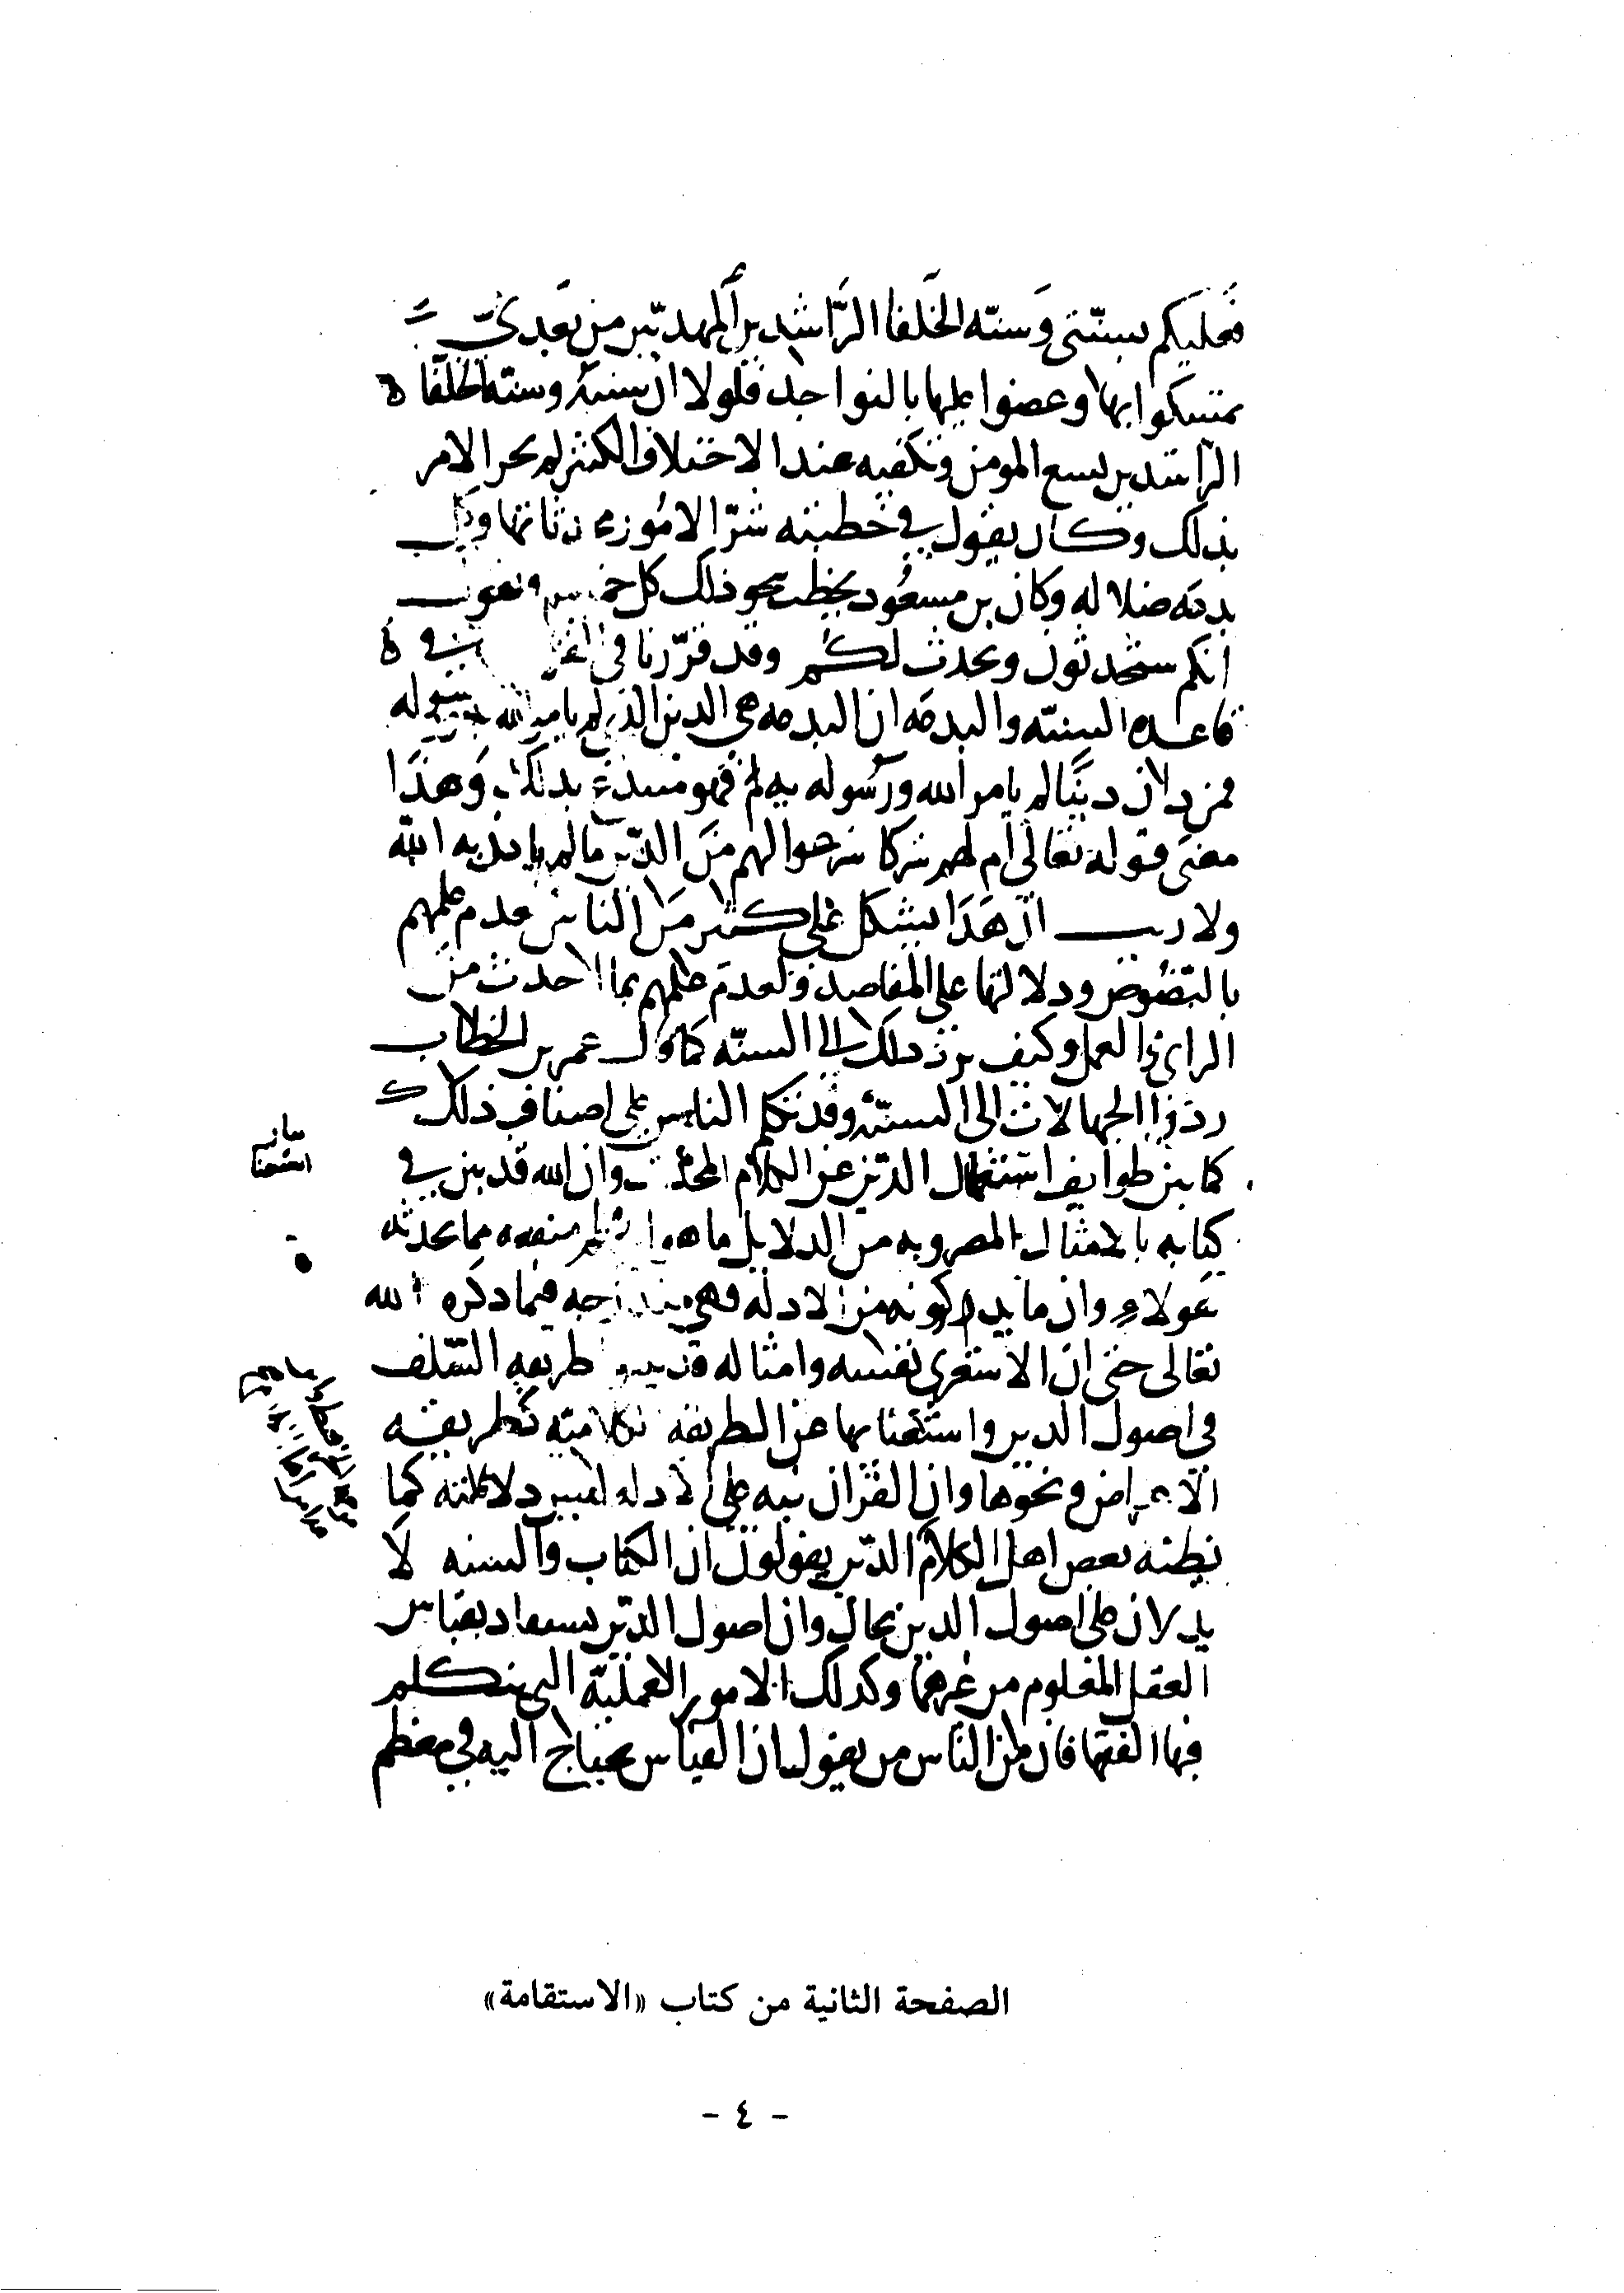 فعليكم بسنتي وسنة الخلفا الراشدين المهديين من بعدي
تمسكوا بها وعضوا عليها بالنواجد فلولا ان سنته وسنة الخلفا
الراشدين يسع المومن وتكفيه عند الاختلاف الكثير لم يجز الامر
بذلك وكان يقول في خطبته شر الامور محدثاتها وكل
بدعه ضلاله وكان بن مسعود يخطب بنحو ذلك كل خميس ويقول
انكم ستحدثون ويحدث لكم وقد قررنا في
قاعده السنه والبدعه ان البدعه هي الدين الذي لم يامر الله به ورسوله
فمن دان دينا لم يامر الله ورسوله به فهو مبتدع بذلك وهذا
معنى قوله تعالى ام لهم شركا شرعوا لهم من الدين ما لم ياذن به الله
ولا ريب ان هذا يشكل على كثير من الناس لعدم علمهم
بالنصوص ودلالتها على المقاصد ولعدم علمهم بما احدث من
الراي والعمل وكيف يرد ذلك الى السنه كما قال عمر بن الخطاب
ردوا الجهالات الى السنه وقد تكلم الناس على اصناف ذلك
كما بين طوايف استغنا الدين عن الكلام المحدث وان الله قد بين في
كتابه بالامثال المضروبه من الدلايل ما هو اعظم منفعه مما يحدثه
هولاء وان ما يذكرونه من الادله فهي مندرجه فيما ذكره الله
تعالى حتى ان الاشعري نفسه وامثاله قد بينوا طريقه السلف
في اصول الدين واستغنايها عن الطريقه الكلاميه كطريقه
الاعراض ونحوها وان القران نبه على الادله ليس دلالته كما
يظنه بعض اهل الكلام الذين يقولون ان الكتاب والسنه لا
يدلان على اصول الدين بحال وان اصول الدين تستفاد بقياس
العقل المعلوم من غيرهما وكذلك الامور العمليه التي يتكلم
فيها الفقها فان من الناس من يقول ان القياس يحتاج اليه في معظم
الصفحة الثانية من كتاب «الاستقامة»
- ٤ -